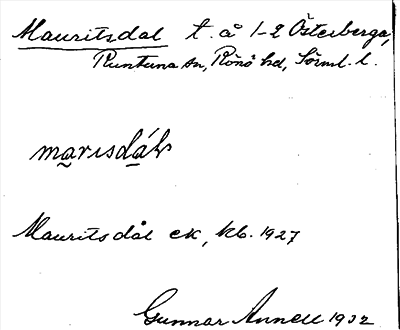 Mauritsdal t. å 1-2 Österberga,
Runtuna sn, Rönö hd, Sörml. l.
Mauritsdål ek, kb. 1927
Gunnar Annell 1932